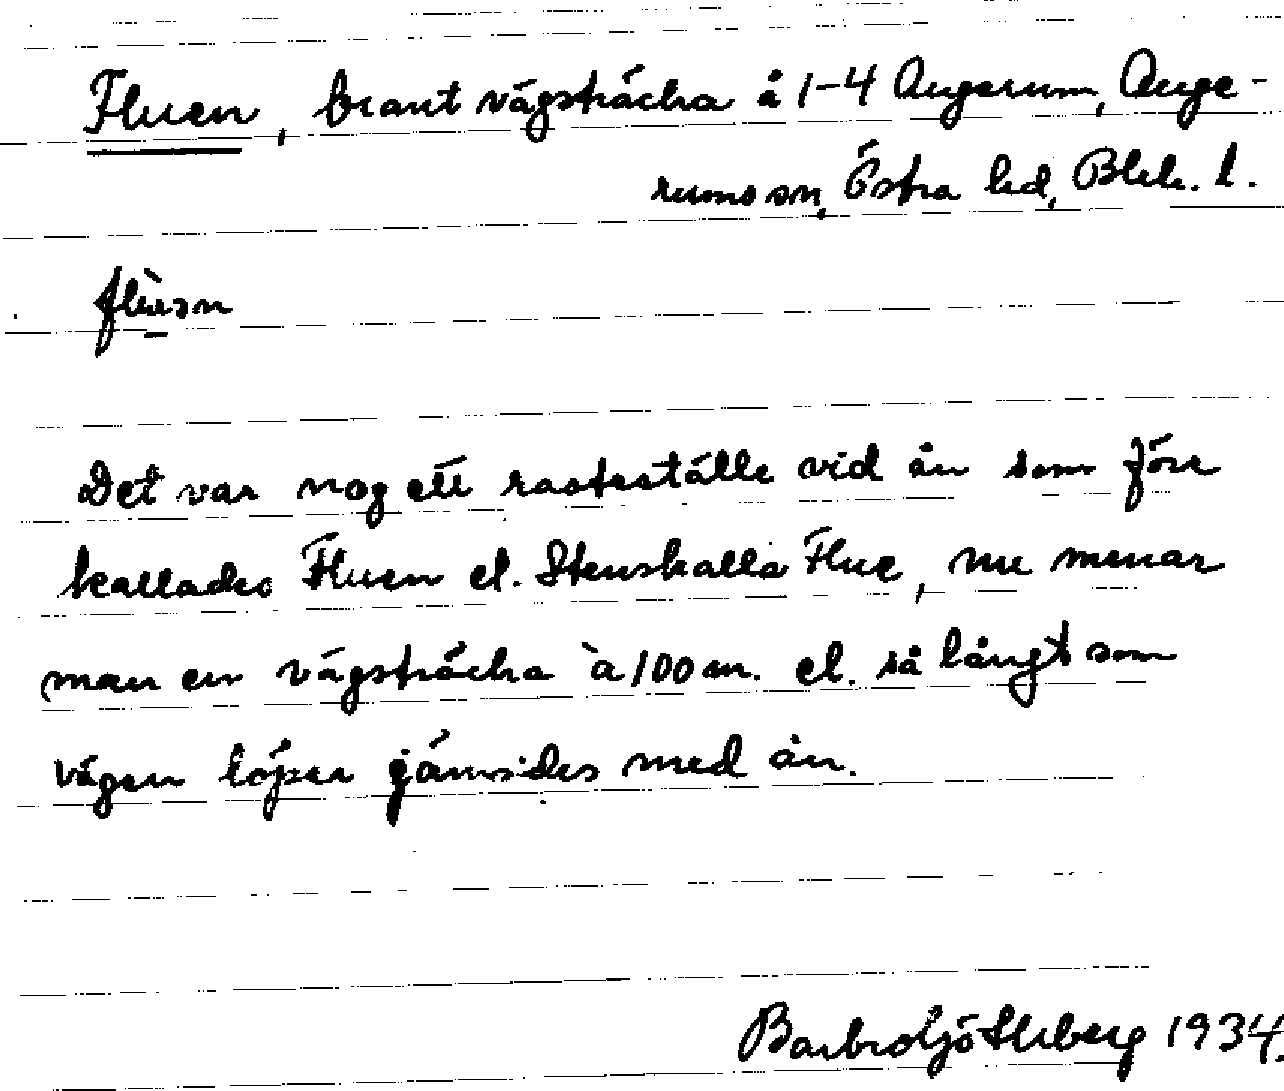 Fluen, brant vägsträcka å 1-4 Augerum, Auge-
rums sn, Östra hd, Blek. l.
flùən
Det var nog ett rastställe vid ån som förr
kallades Fluen el. Stenskalla Flue, nu menar
man en vägsträcka à 100 m. el. så långt som
vägen löper jämsides med ån.
Barbro 1934.